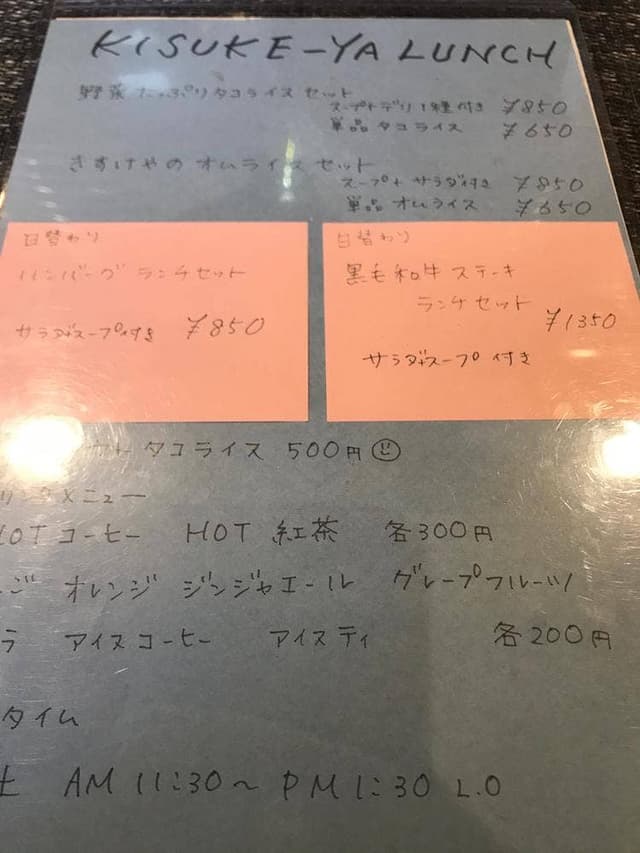 KISUKE-YA LUNCH
野菜たっぷりタコライスセット
スープ+デリ1種付き ¥850
単品 タコライス ¥650
きすけやの オムライスセット
スープ+サラダ付き ¥850
単品 オムライス ¥650
日替わり
ハンバーグ ランチセット
サラダ+スープ付き ¥850
日替わり
黒毛和牛ステーキ
ランチセット
¥1350
サラダ+スープ付き
タコライス 500円
メニュー
HOTコーヒー HOT 紅茶 各300円
オレンジ ジンジャエール グレープフルーツ
アイスコーヒー アイスティ 各200円
タイム
土 AM 11:30〜PM 1:30 L.O